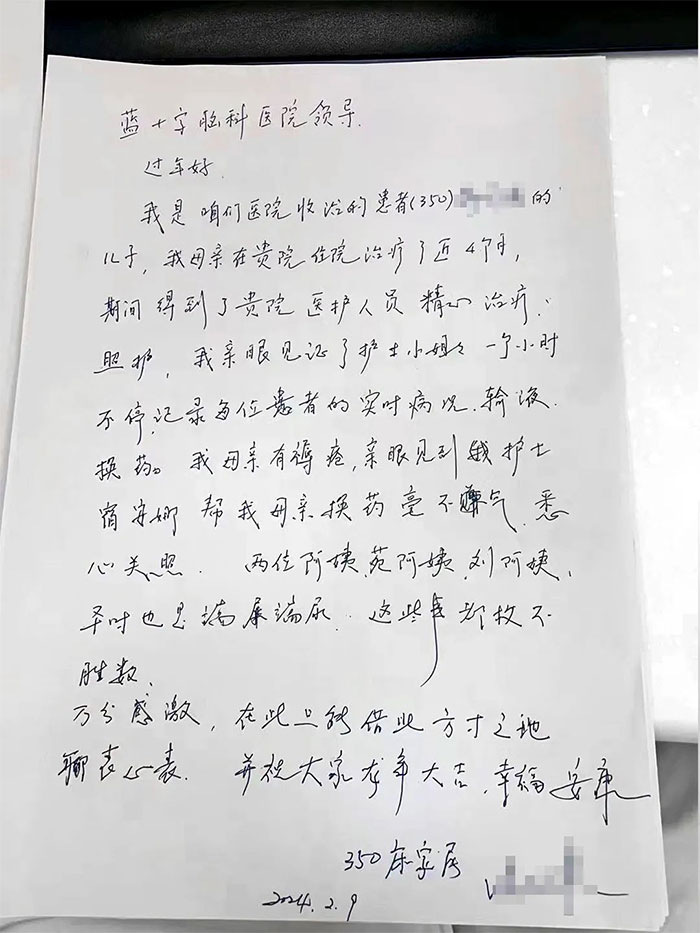 蓝十字脑科医院领导.
过年好.
我是咱们医院收治的患者(350)的
儿子,我母亲在贵院住院治疗了近4个月,
期间得到了贵院医护人员精心治疗.
照护,我亲眼见证了护士小姐々一个小时
不停记录每位患者的实时病况.输液.
换药。我母亲有褥疮,亲眼见到护士
宿安娜帮我母亲换药毫不嫌气.悉
心关照.两位阿姨,苑阿姨,刘阿姨,
平时也是端屎端尿.这些事都枚不
胜数.
万分感激,在此只能借此方寸之地
聊表心衷.并祝大家龙年大吉,幸福安康
350床家属
2024.2.9